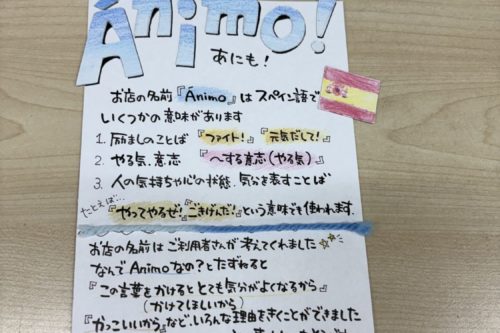 Ánimo!
あにも!
お店の名前『Ánimo』はスペイン語で
いくつかの意味があります
1. 励ましのことば 『ファイト!』『元気だして!』
2. やる気.意志 『〜する意志(やる気)』
3. 人の気持ちや心の状態.気分を表すことば
たとえば…
『やってやるぜ!』『ごきげんだ!』という意味でも使われます.
お店の名前はご利用者さんが考えてくれました
なんでAnimoなの?とたずねると
『この言葉をかけるととても気分がよくなるから』
(かけてほしいから)
『かっこいいから』など.いろんな理由をきくことができました